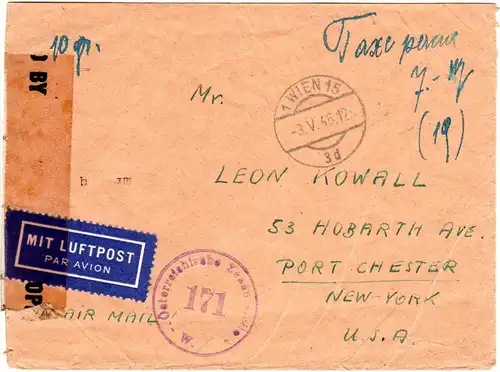 D BY
10 gr.
Taxe perçue
7.-
(19)
Mr.
1 WIEN 15
-3.V.46.12
3d
LEON KOWALL
53 HOBARTH AVE.
PORT CHESTER
NEW-YORK
U.S.A
MIT LUFTPOST
PAR AVION
OP
AIR MAIL
Österreichische
171
W.